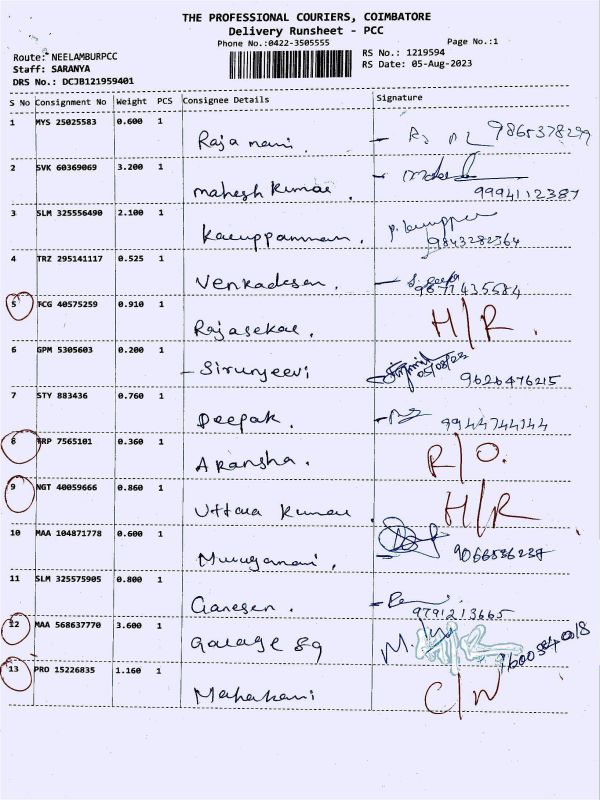 THE PROFESSIONAL COURIERS, COIMBATORE
Delivery Runsheet - PCC
Phone No.:0422-3505555
Page No.:1
Route: NEELAMBURPCC
RS No.: 1219594
Staff: SARANYA
RS Date: 05-Aug-2023
DRS No.: DCJB121959401
S No Consignment No Weight PCS Consignee Details Signature
1 MYS 25025583 0.600 1 Rajamani. 9865378299
2 SVK 60369069 3.200 1 Mahesh Kumar. 9994112387
3 SLM 325556490 2.100 1 Karuppannan. 9843282364
4 TRZ 295141117 0.525 1 Venkadesan. 9677435584
5 TCG 40575259 0.910 1 Rajasekar. H/R.
6 GPM 5305603 0.200 1 Sirunjeevi 05/08/23 9626476215
7 STY 883436 0.760 1 Deepak. 9944744144
8 TRP 7565101 0.360 1 Akansha. R/O.
9 NGT 40059666 0.860 1 Uttara Kumar. H/R
10 MAA 104871778 0.600 1 Murugamani. 9066536237
11 SLM 325575905 0.800 1 Ganesen. 9791213665
12 MAA 568637770 3.600 1 Garage 89
13 PRO 15226835 1.160 1 Mahakani C/N